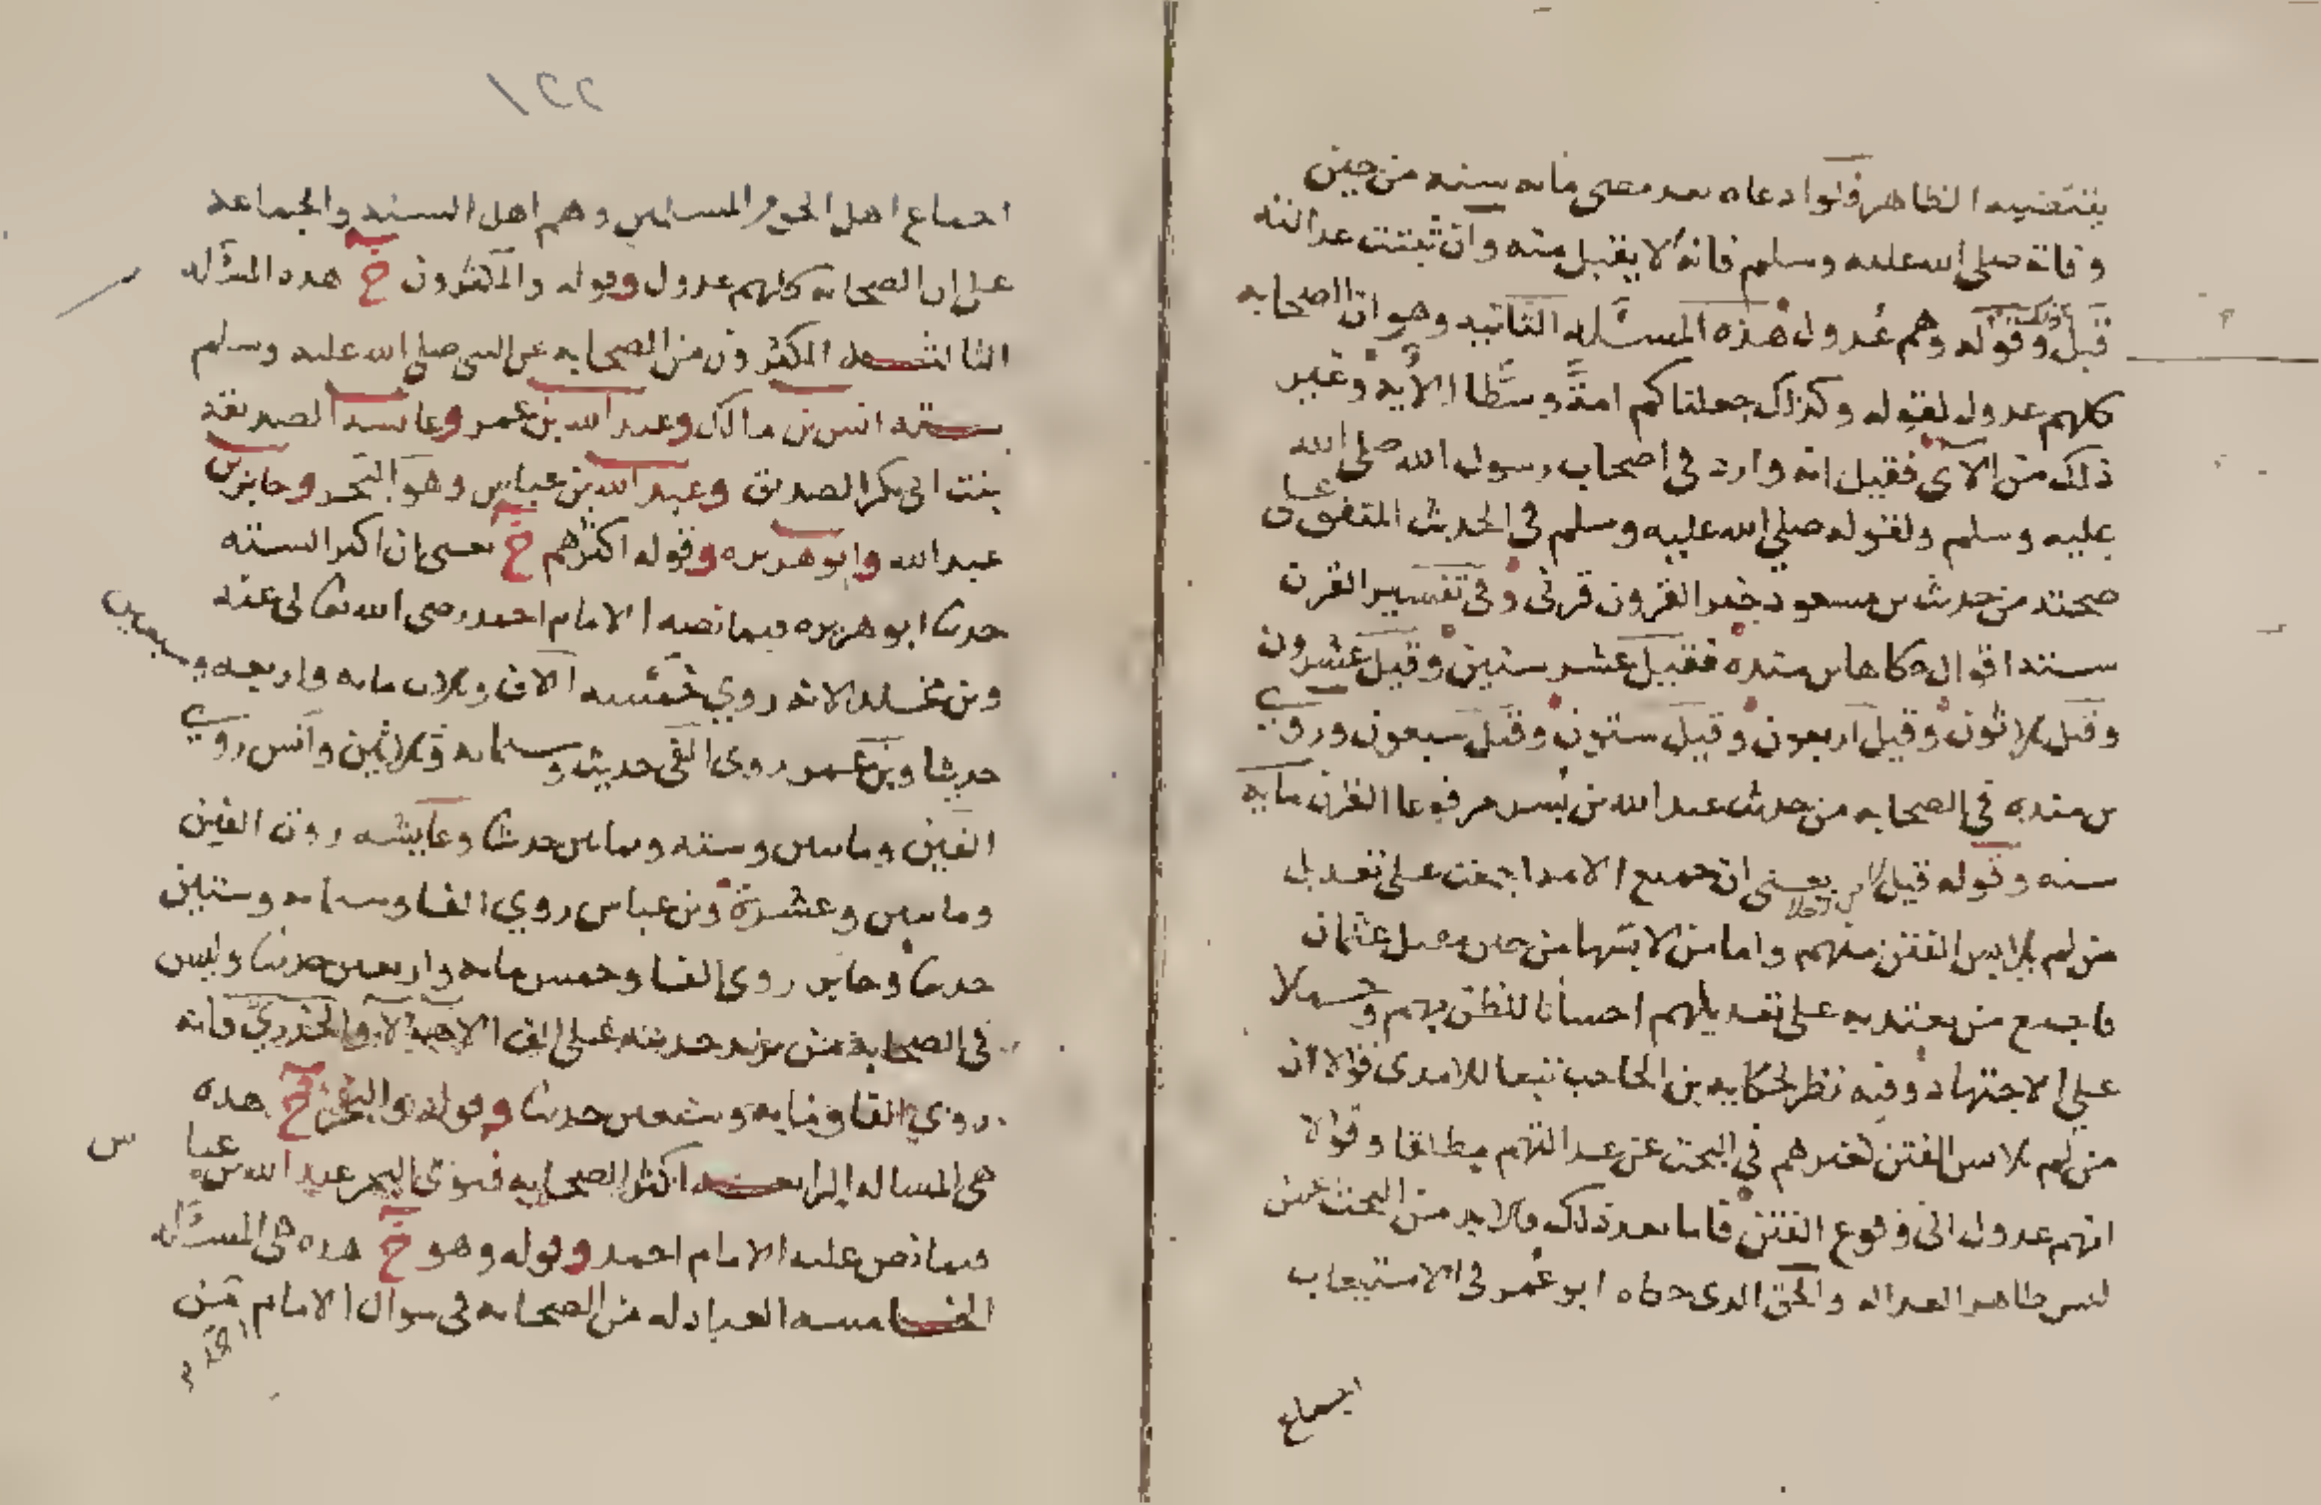 يقتضيه الظاهر فلو ادعاه بعد مضى مائه سنه من حين
وفاته صلى الله عليه وسلم فانه لا يقبل منه وان ثبتت عدالته
قبل ذلك وقوله وهم عدول هذه المسئله الثانيه وهو ان الصحابه
كلهم عدول لقوله وكذلك جعلناكم امة وسطا الايه وغير
ذلك من الآي فقيل انه وارد في اصحاب رسول الله صلى الله
عليه وسلم ولقوله صلى الله عليه وسلم في الحديث المتفق على
صحته من حديث بن مسعود خير القرون قرني وفي تفسير القرن
ستة اقوال حكاها بن منده فقيل عشر سنين وقيل عشرون
وقيل ثلاثون وقيل اربعون وقيل ستون وقيل سبعون وروى
بن منده في الصحابه من حديث عبد الله بن بسر مرفوعا القرن مايه
سنه وقوله قيل لا من دخلا يعنى ان جميع الامة اجمعت على تعديل
من لم يلابس الفتن منهم واما من لابسها من حين مقتل عثمان
فاجمع من يعتد به على تعديلهم احسانا للظن بهم وحملا
على الاجتهاد وفيه نظر لحكايه بن الحاجب تبعا للامدى قولا ان
من لم يلابس الفتن كغيرهم في البحث عن عدالتهم مطلقا وقولا
انهم عدول الى وقوع الفتن فاما بعد ذلك فلابد من البحث عمن
ليس ظاهر العداله والحق الذى حكاه ابو عمر في الاستيعاب
اجماع
٢٢١
اجماع اهل الحق من المسلمين وهم اهل السنه والجماعه
على ان الصحابه كلهم عدول وقوله والمكثرون خ هذه المسئله
الثالثه المكثرون من الصحابه عن النبى صلى الله عليه وسلم
ستة انس بن مالك وعبد الله بن عمر وعايشه الصديقه
بنت ابى بكر الصديق وعبد الله بن عباس وهو البحر وجابر بن
عبد الله وابو هريره وقوله اكثرهم خ يعنى ان اكثر السته
حديثا ابو هريره فيما نصه الامام احمد رضى الله تعالى عنه
وبن مخلد لانه روي خمسه الاف وثلاث مايه واربعه وسبعين
حديثا وبن عمر روى الفى حديث وستمايه وثلاثين وانس روي
الفين ومايتين وسته وثمانين حديثا وعايشه روت الفين
ومايتين وعشرة وبن عباس روي الفا وستمايه وستين
حديثا وجابر روى الفا وخمس مايه واربعين حديثا وليس
في الصحابة من يزيد حديثه على الف الا هولاء والخدري فانه
روي الفا ومايه وسبعين حديثا وقوله والبحر خ هذه
هى المساله الرابعه اكثر الصحابه فتوى البحر عبد الله بن عباس
فيما نص عليه الامام احمد وقوله وهو خ هذه هى المسئله
الخامسه العبادله من الصحابه في سوال الامام من
احمد